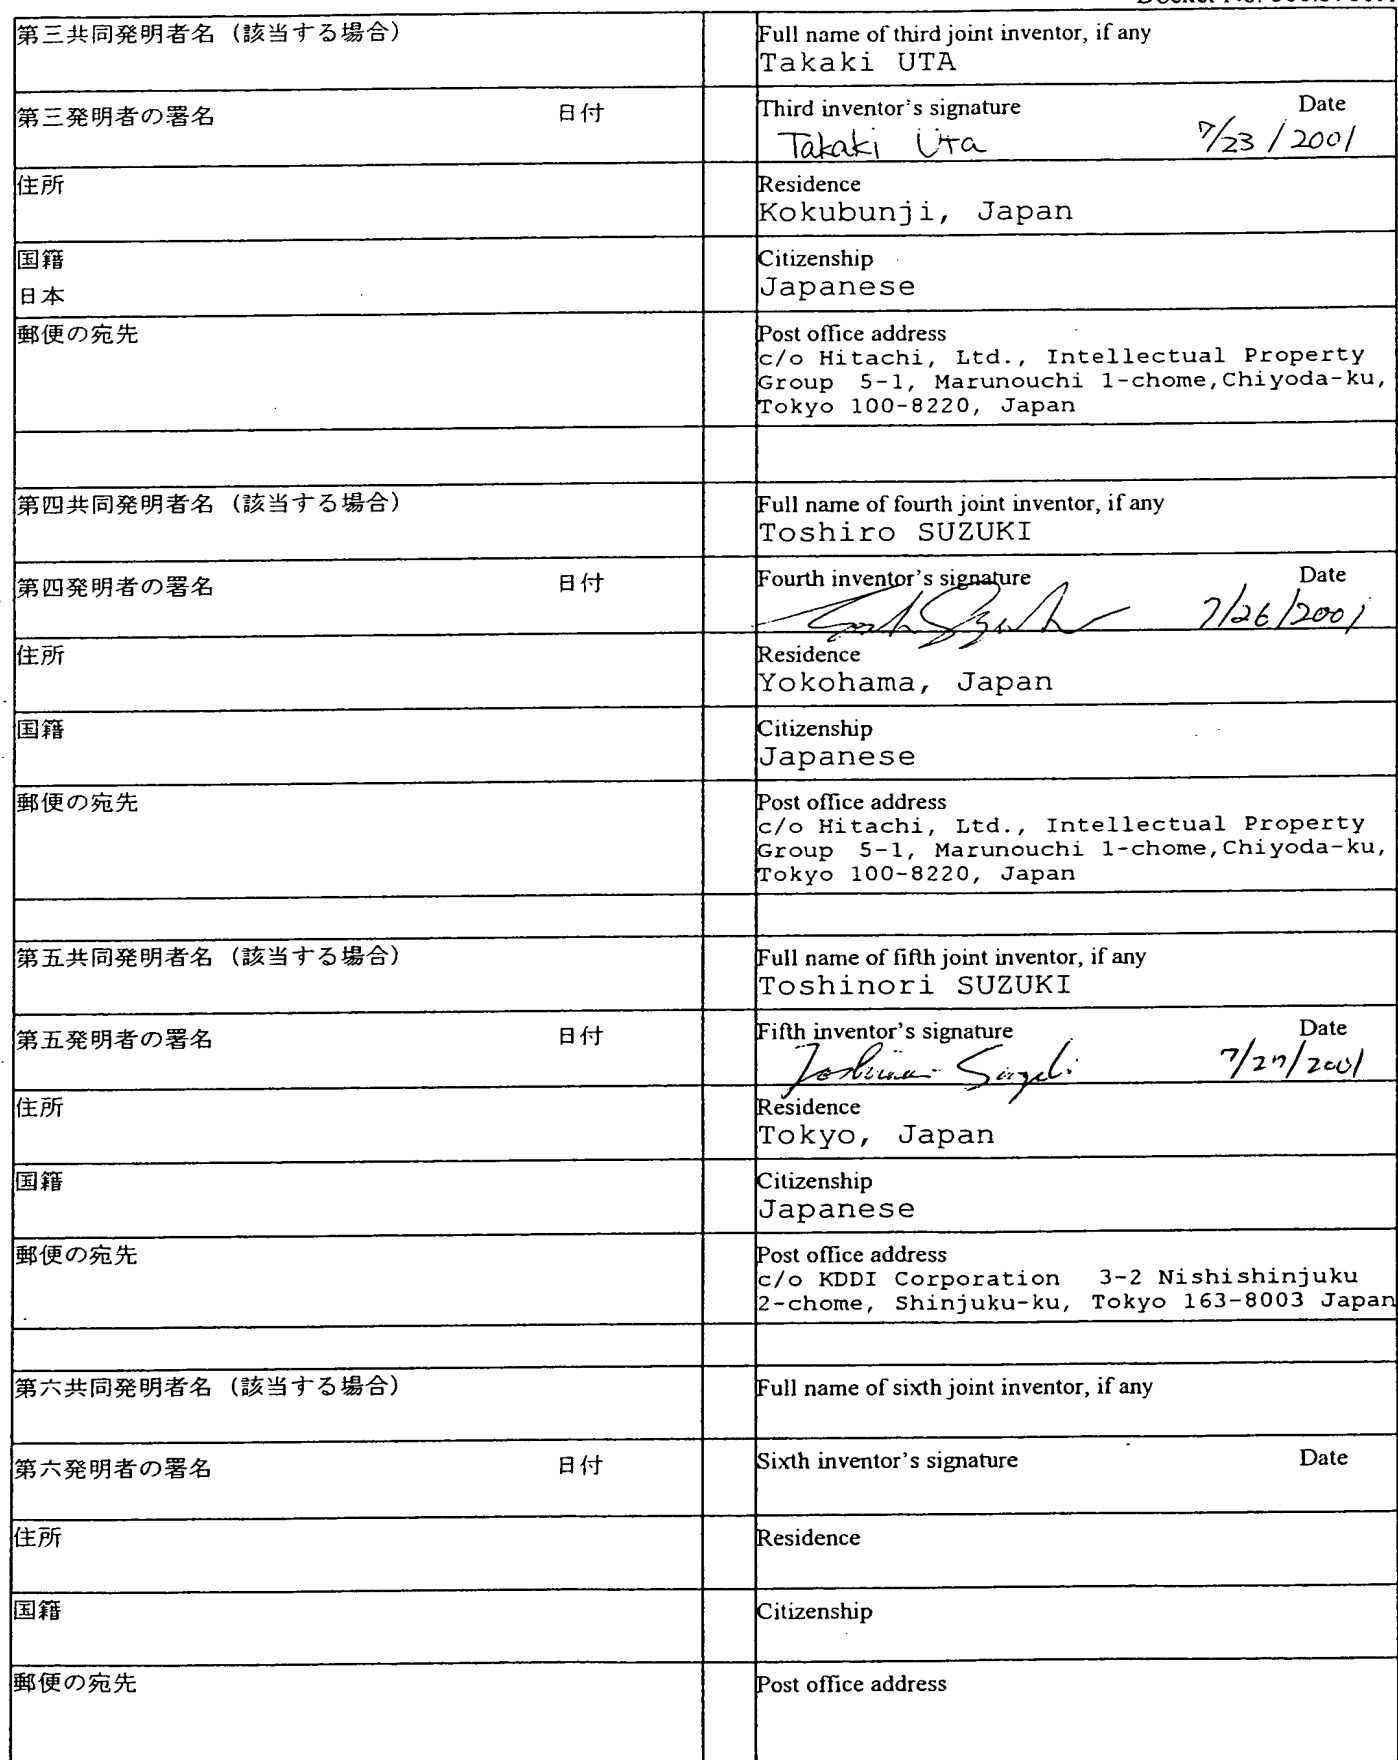 第三共同発明者名（該当する場合）
Full name of third joint inventor, if any
Takaki UTA
第三発明者の署名 日付
Third inventor's signature Date
Takaki Uta 7/23/2001
住所
Residence
Kokubunji, Japan
国籍
日本
Citizenship
Japanese
郵便の宛先
Post office address
c/o Hitachi, Ltd., Intellectual Property
Group 5-1, Marunouchi 1-chome,Chiyoda-ku,
Tokyo 100-8220, Japan
第四共同発明者名（該当する場合）
Full name of fourth joint inventor, if any
Toshiro SUZUKI
第四発明者の署名 日付
Fourth inventor's signature Date
7/26/2001
住所
Residence
Yokohama, Japan
国籍
Citizenship
Japanese
郵便の宛先
Post office address
c/o Hitachi, Ltd., Intellectual Property
Group 5-1, Marunouchi 1-chome,Chiyoda-ku,
Tokyo 100-8220, Japan
第五共同発明者名（該当する場合）
Full name of fifth joint inventor, if any
Toshinori SUZUKI
第五発明者の署名 日付
Fifth inventor's signature Date
7/27/2001
住所
Residence
Tokyo, Japan
国籍
Citizenship
Japanese
郵便の宛先
Post office address
c/o KDDI Corporation 3-2 Nishishinjuku
2-chome, Shinjuku-ku, Tokyo 163-8003 Japan
第六共同発明者名（該当する場合）
Full name of sixth joint inventor, if any
第六発明者の署名 日付
Sixth inventor's signature Date
住所
Residence
国籍
Citizenship
郵便の宛先
Post office address